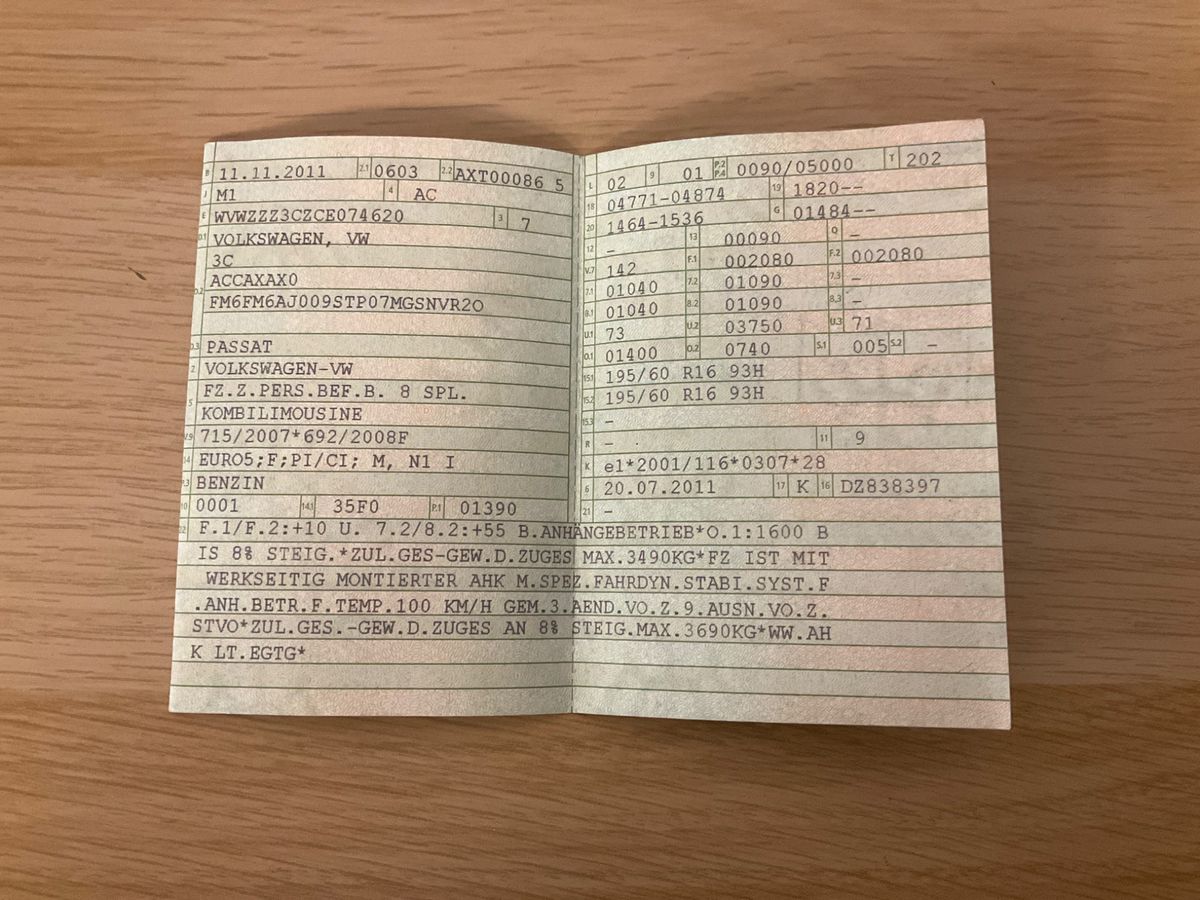 B 11.11.2011 2.1 0603 2.2 AXT00086 5
J M1 4 AC
E WVWZZZ3CZCE074620 3 7
D.1 VOLKSWAGEN, VW
3C
D.2 ACCAXAX0
FM6FM6AJ009STP07MGSNVR2O
D.3 PASSAT
2 VOLKSWAGEN-VW
FZ.Z.PERS.BEF.B. 8 SPL.
5 KOMBILIMOUSINE
V.9 715/2007*692/2008F
14 EURO5;F;PI/CI; M, N1 I
P.3 BENZIN
10 0001 14.1 35F0 P.1 01390
L 02 9 01 P.2 P.4 0090/05000 T 202
18 04771-04874 19 1820--
20 1464-1536 G 01484--
12 - 13 00090 Q -
V.7 142 F.1 002080 F.2 002080
7.1 01040 7.2 01090 7.3 -
8.1 01040 8.2 01090 8.3 -
U.1 73 U.2 03750 U.3 71
O.1 01400 O.2 0740 S.1 005 S.2 -
15.1 195/60 R16 93H
15.2 195/60 R16 93H
15.3 -
R - 11 9
K e1*2001/116*0307*28
6 20.07.2011 17 K 16 DZ838397
21 -
22 F.1/F.2:+10 U. 7.2/8.2:+55 B.ANHÄNGEBETRIEB*O.1:1600 B
IS 8% STEIG.*ZUL.GES-GEW.D.ZUGES MAX.3490KG*FZ IST MIT
WERKSEITIG MONTIERTER AHK M.SPEZ.FAHRDYN.STABI.SYST.F
.ANH.BETR.F.TEMP.100 KM/H GEM.3.AEND.VO.Z.9.AUSN.VO.Z.
STVO*ZUL.GES.-GEW.D.ZUGES AN 8% STEIG.MAX.3690KG*WW.AH
K LT.EGTG*